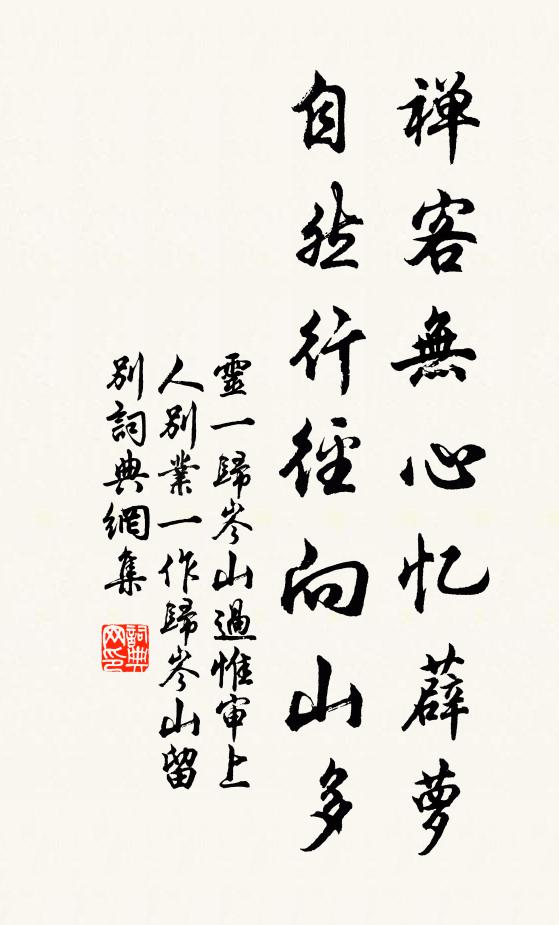 禅客無心忆薜萝
自然行徑向山多
靈一歸岑山過惟审上
人别業一作歸岑山留
别詞典網集
詞典网印